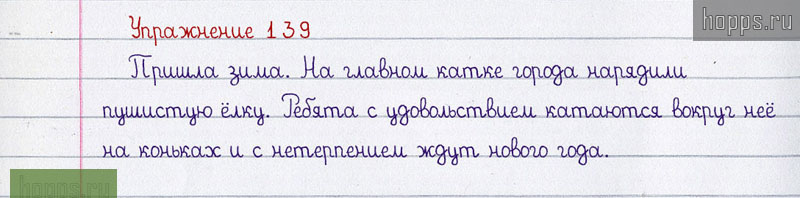 hopps.ru
Упражнение 139
Пришла зима. На главном катке города нарядили
пушистую ёлку. Ребята с удовольствием катаются вокруг неё
на коньках и с нетерпением ждут нового года.
hopps.ru